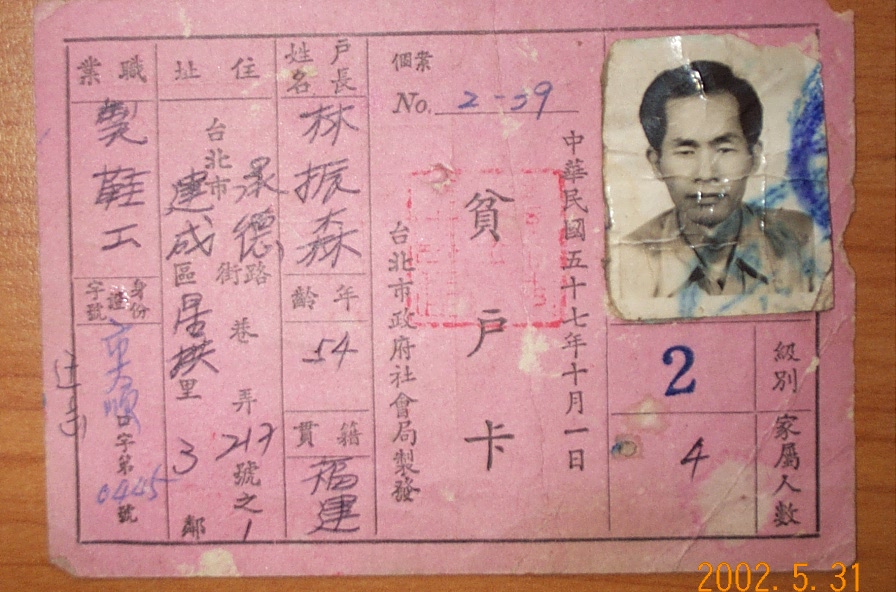 級別
2
家屬人數
4
中華民國五十七年十月一日
貧戶卡
台北市政府社會局製發
個案
No. 2-39
戶長姓名
林振森
年齡
54
籍貫
福建
住址
台北市承德路街巷弄217號之1
建成區里3鄰
職業
製鞋工
身份證字號
口字第0445號
2002.5.31